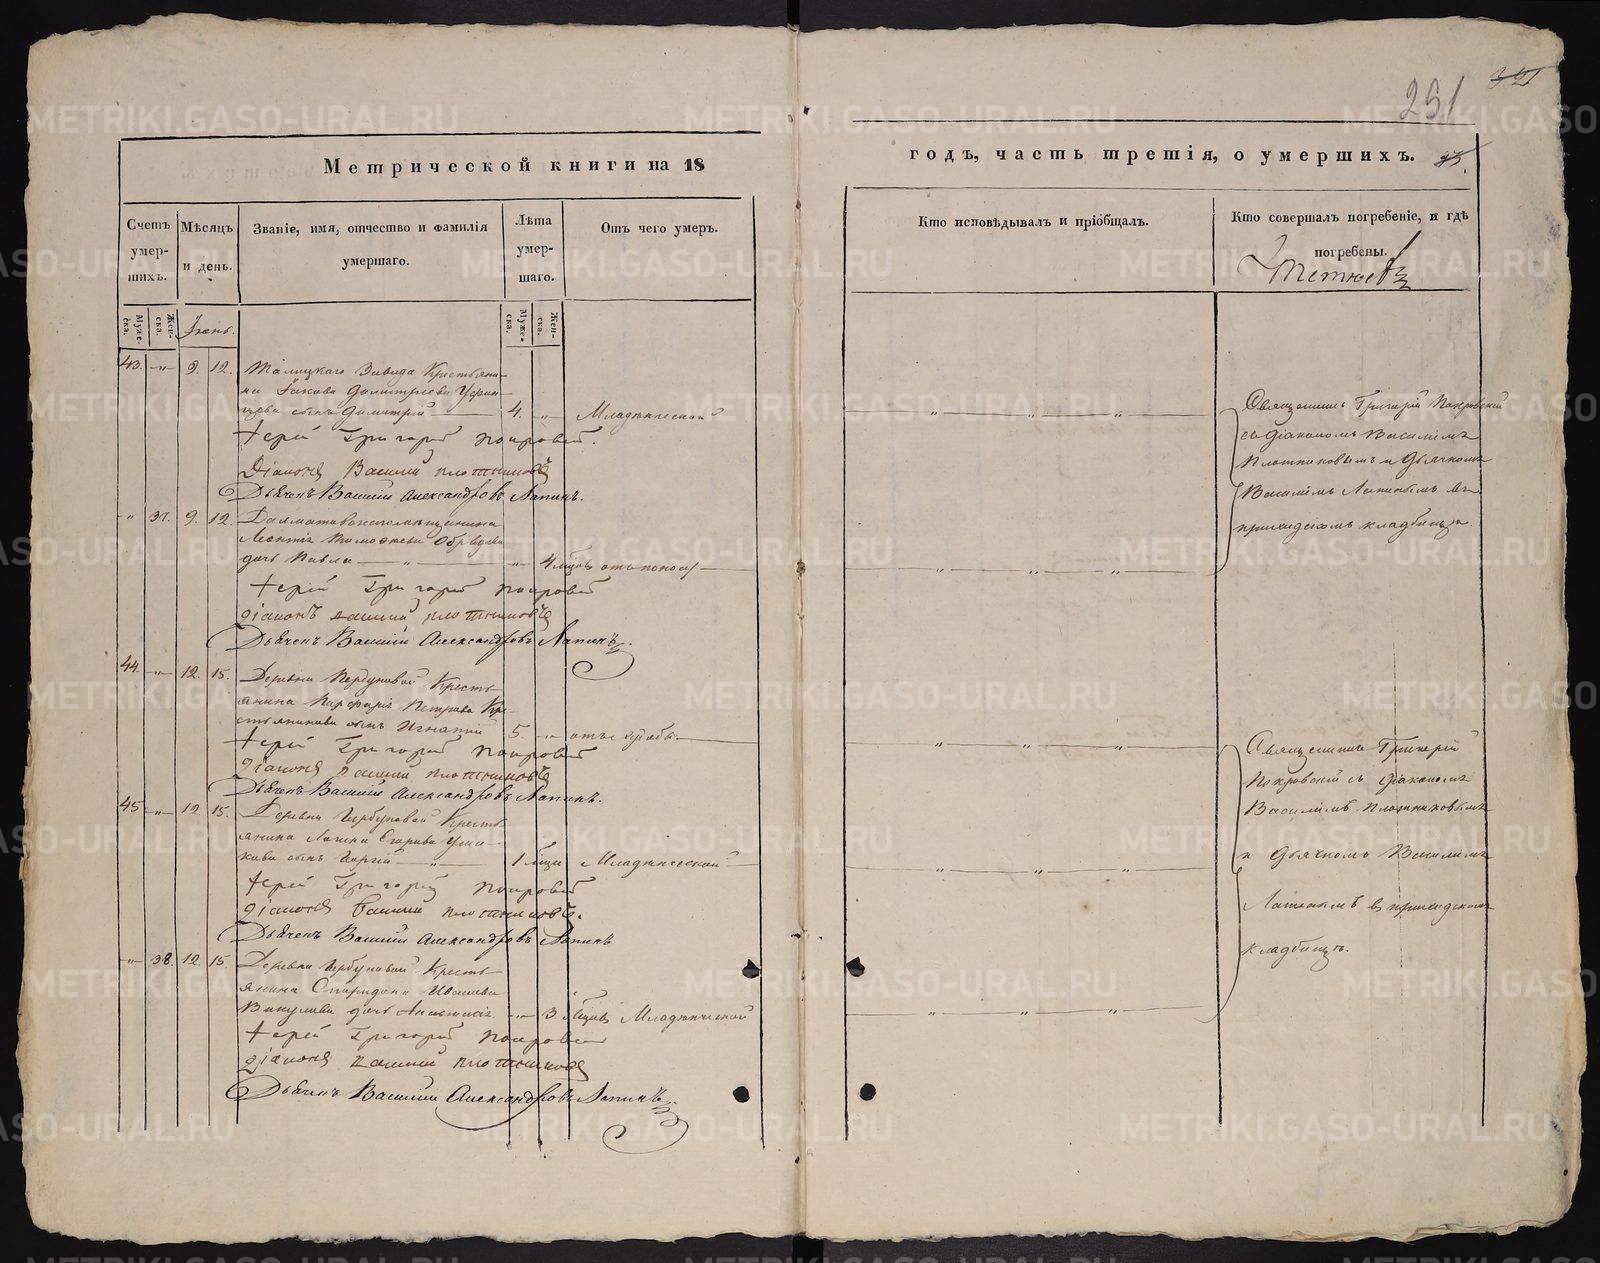 251
Метрической книги на 18
годъ, часть третія, о умершихъ.
Счетъ умер-
шихъ.
Мѣсяцъ
и день.
Званіе, имя, отчество и фамилія
умершаго.
Лѣта
умер-
шаго.
Отъ чего умеръ.
Кто исповѣдывалъ и пріобщалъ.
Кто совершалъ погребеніе, и гдѣ
погребены.
Муже-
ска.
Жен-
ска.
Муже-
ска.
Жен-
ска.
43. 9. 12. Талицкаго Завода Крестьяни-
на Іакова Димитріева
сынъ Димитрій 4. Младенческой
Іерей Григорій Покровскій.
Діаконъ Василій Плотниковъ
Дьячекъ Василій Александровъ Лапинъ.
37. 9. 12.
дочь Павла 4 мцовъ отъ поносу
Іерей Григорій Покровскій
Діаконъ Василій Плотниковъ
Дьячекъ Василій Александровъ Лапинъ.
44. 12. 15. Деревни Кресть-
янина Порфирія Петрова Кре-
стьянинова сынъ Игнатій 5
Іерей Григорій Покровскій
Діаконъ Василій Плотниковъ
Дьячекъ Василій Александровъ Лапинъ.
45 12. 15. Деревни Кресть-
янина Егорова Уша-
кова сынъ 1 мца Младенческой
Іерей Григорій Покровскій
Діаконъ Василій Плотниковъ.
Дьячекъ Василій Александровъ Лапинъ
38. 12. 15. Деревни Кресть-
янина Спиридона Иванова
Викулова дочь Анастасія 3. мцовъ Младенческой
Іерей Григорій Покровскій
Діаконъ Василій Плотниковъ
Дьячекъ Василій Александровъ Лапинъ.
Священникъ Григорій Покровскій
съ Діакономъ Василіемъ
Плотниковымъ и Дьячкомъ
Василіемъ Лапинымъ въ
приходскомъ кладбищѣ.
Священникъ Григорій
Покровскій съ Діакономъ
Василіемъ Плотниковымъ
и Дьячкомъ Василіемъ
Лапинымъ въ приходскомъ
кладбищѣ.
METRIKI.GASO-URAL.RU